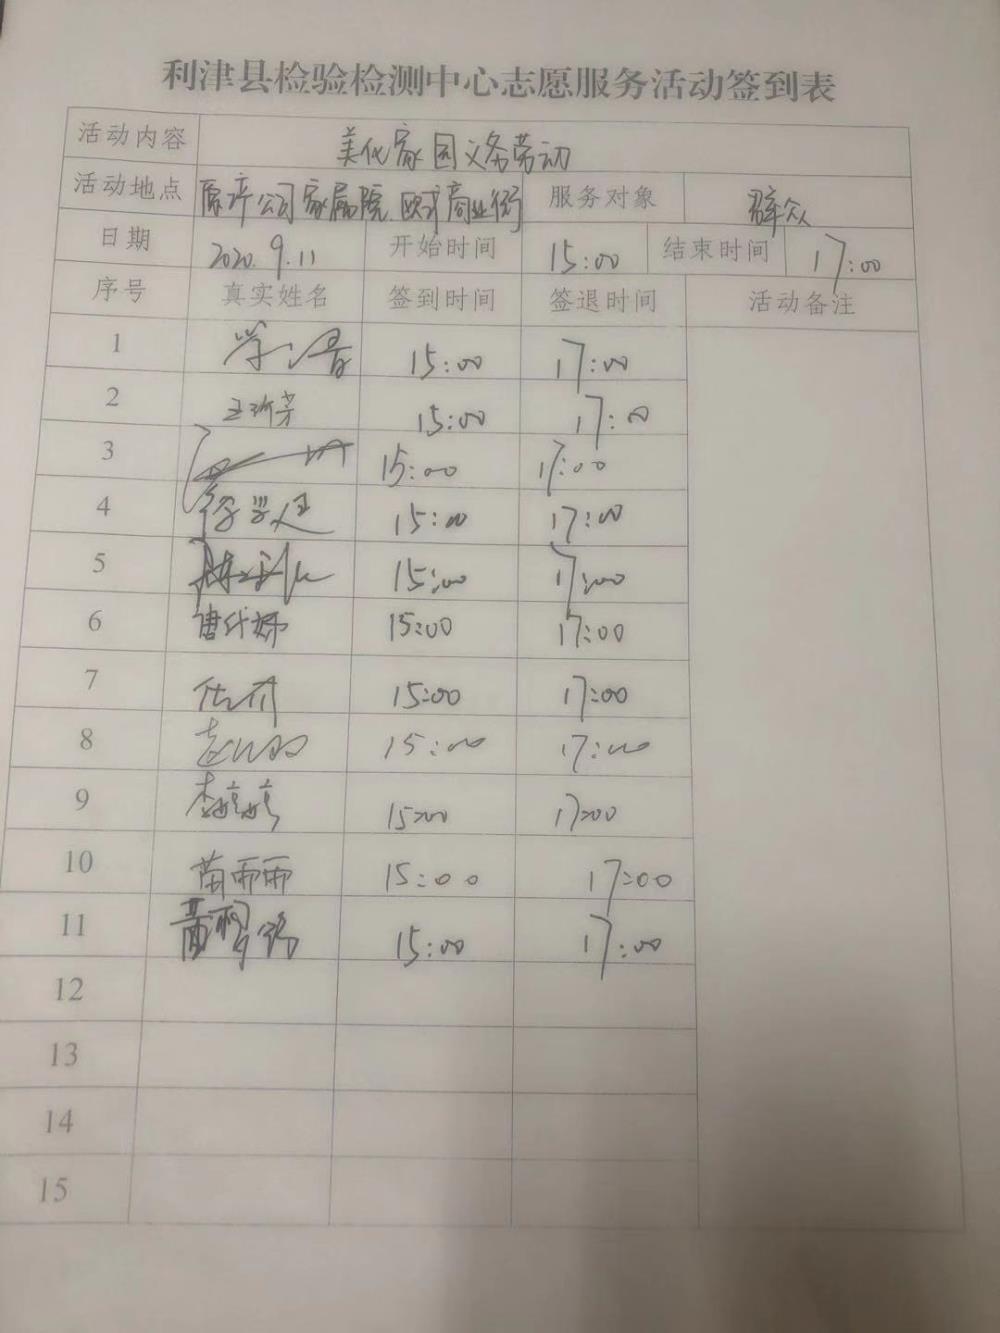 利津县检验检测中心志愿服务活动签到表
活动内容 美化家园义务劳动
活动地点 公司家属院 欧式商业街 服务对象 群众
日期 2020.9.11 开始时间 15:00 结束时间 17:00
序号 真实姓名 签到时间 签退时间 活动备注
1 15:00 17:00
2 15:00 17:00
3 15:00 17:00
4 15:00 17:00
5 15:00 17:00
6 15:00 17:00
7 15:00 17:00
8 15:00 17:00
9 李婷婷 15:00 17:00
10 苗雨雨 15:00 17:00
11 15:00 17:00
12
13
14
15